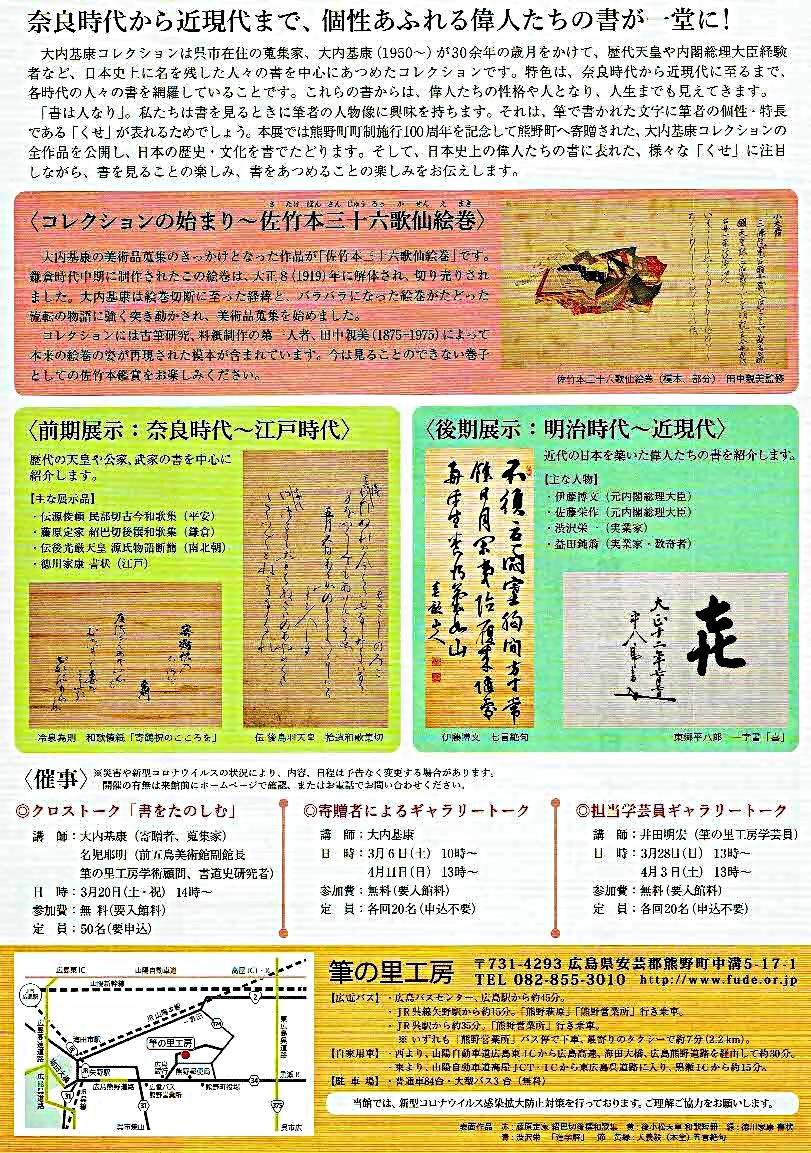 奈良時代から近現代まで、個性あふれる偉人たちの書が一堂に!
大内基康コレクションは呉市在住の蒐集家、大内基康(1950～)が30余年の歳月をかけて、歴代天皇や内閣総理大臣経験
者など、日本史上に名を残した人々の書を中心にあつめたコレクションです。特色は、奈良時代から近現代に至るまで、
各時代の人々の書を網羅していることです。これらの書からは、偉人たちの性格や人となり、人生までも見えてきます。
「書は人なり」。私たちは書を見るときに筆者の人物像に興味を持ちます。それは、筆で書かれた文字に筆者の個性・特長
である「くせ」が表れるためでしょう。本展では熊野町町制施行100周年を記念して熊野町へ寄贈された、大内基康コレクションの
全作品を公開し、日本の歴史・文化を書でたどります。そして、日本史上の偉人たちの書に表れた、様々な「くせ」に注目
しながら、書を見ることの楽しみ、書をあつめることの楽しみをお伝えします。
さたけぼんさんじゅうろっかせんえまき
〈コレクションの始まり～佐竹本三十六歌仙絵巻〉
大内基康の美術品蒐集のきっかけとなった作品が「佐竹本三十六歌仙絵巻」です。
鎌倉時代中期に制作されたこの絵巻は、大正8(1919)年に解体され、切り売りされ
ました。大内基康は絵巻切断に至った経緯と、バラバラになった絵巻がたどった
流転の物語に強く突き動かされ、美術品蒐集を始めました。
コレクションには古筆研究、料紙制作の第一人者、田中親美(1875-1975)によって
本来の絵巻の姿が再現された模本が含まれています。今は見ることのできない巻子
としての佐竹本鑑賞をお楽しみください。
佐竹本三十六歌仙絵巻(模本、部分) 田中親美監修
〈前期展示：奈良時代～江戸時代〉
歴代の天皇や公家、武家の書を中心に
紹介します。
【主な展示品】
・伝源俊頼 民部切古今和歌集（平安）
・藤原定家 紹巴切後撰和歌集（鎌倉）
・伝後光厳天皇 源氏物語断簡（南北朝）
・徳川家康 書状（江戸）
冷泉為則 和歌懐紙「寄鶴祝のこころを」
伝 後鳥羽天皇 拾遺和歌集切
〈後期展示：明治時代～近現代〉
近代の日本を築いた偉人たちの書を紹介します。
【主な人物】
・伊藤博文（元内閣総理大臣）
・佐藤栄作（元内閣総理大臣）
・渋沢栄一（実業家）
・益田鈍翁（実業家・数寄者）
伊藤博文 七言絶句
東郷平八郎 一字書「喜」
〈催事〉
※災害や新型コロナウイルスの状況により、内容、日程は予告なく変更する場合があります。
開催の有無は来館前にホームページで確認、またはお電話でお問い合わせください。
◎クロストーク「書をたのしむ」
講 師：大内基康（寄贈者、蒐集家）
名児耶明（前五島美術館副館長
筆の里工房学術顧問、書道史研究者）
日 時：3月20日(土・祝) 14時～
参加費：無 料(要入館料)
定 員：50名(要申込)
◎寄贈者によるギャラリートーク
講 師：大内基康
日 時：3月6日(土) 10時～
4月11日(日) 13時～
参加費：無料(要入館料)
定 員：各回20名(申込不要)
◎担当学芸員ギャラリートーク
講 師：井田明宏（筆の里工房学芸員）
日 時：3月28日(日) 13時～
4月3日(土) 13時～
参加費：無料(要入館料)
定 員：各回20名(申込不要)
広島東IC
山陽自動車道
高屋JCT・IC
山陽新幹線
JR山陽本線
海田市駅
矢野駅
筆の里工房
熊野郵便局
広島熊野道路
広電バス
熊野営業所
熊野町役場
黒瀬IC
東広島呉道路
広島高速道路
広島呉道路
2
174
34
31
375
筆の里工房
〒731-4293 広島県安芸郡熊野町中溝5-17-1
TEL 082-855-3010 http://www.fude.or.jp
【広電バス】・広島バスセンター、広島駅から約45分。
・JR呉線矢野駅から約15分。「熊野萩原」「熊野営業所」行き乗車。
・JR呉駅から約35分。「熊野営業所」行き乗車。
※ いずれも「熊野営業所」バス停で下車、最寄りのタクシーで約7分(2.2km)。
【自家用車】・西より、山陽自動車道広島東ICから広島高速、海田大橋、広島熊野道路を経由して約30分。
・東より、山陽自動車道高屋JCT・ICから東広島呉道路に入り、黒瀬ICから約15分。
【駐 車 場】・普通車84台・大型バス3台（無料）
当館では、新型コロナウイルス感染拡大防止対策を行っております。ご理解ご協力をお願いします。